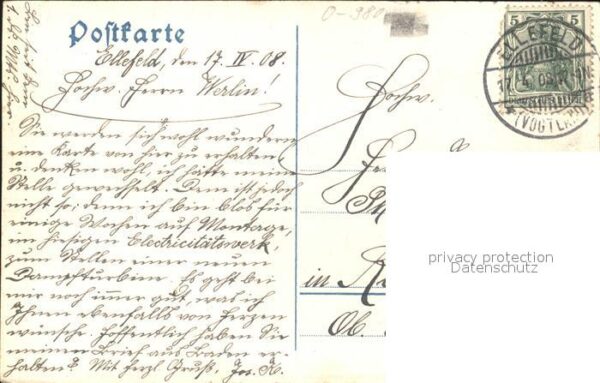 Postkarte
O-980
Ellefeld, den 17. IV. 08.
Hochw. Herrn Werlin!
Sie werden sich wohl wundern
eine Karte von hier zu erhalten
u. denken wohl, ich hätte meine
Stelle gewechselt. Dem ist jedoch
nicht so; denn ich bin blos für
einige Wochen auf Montage,
im hiesigen Electricitätswerk,
zum Stellen einer neuen
Dampfturbine. Es geht bei
mir noch immer gut, was ich
Ihnen ebenfalls von Herzen
wünsche. Hoffentlich haben Sie
meinen Brief aus Baden er-
halten? Mit herzl. Gruß, Jos. K.
Hochw.
in
Ob.
5 5
ELLEFELD
(VOGTL.
privacy protection
Datenschutz